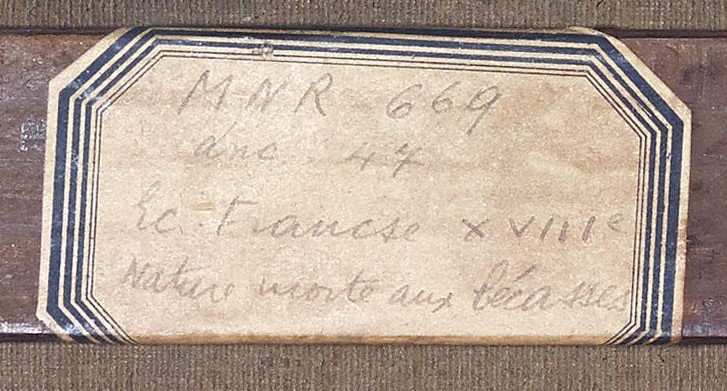 MNR 669
anc. 47
Ec. Francse XVIIIe
Nature morte aux bécasses